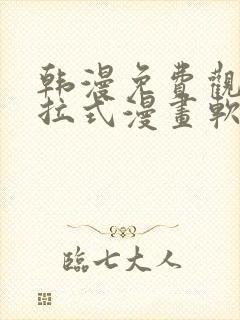 韩漫免費觀
拉式漫畫軟
臨七大人